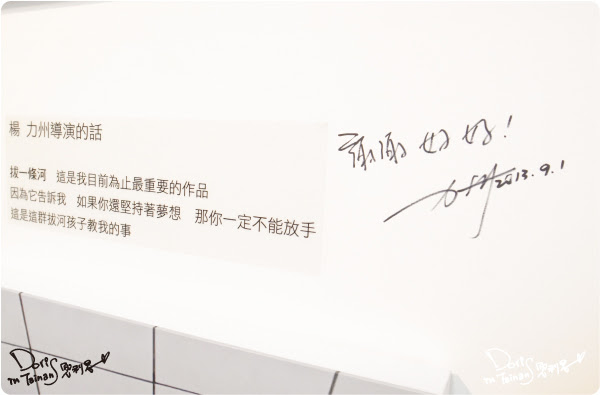 楊 力州導演的話
拔一條河 這是我目前為止最重要的作品
因為它告訴我 如果你還堅持著夢想 那你一定不能放手
這是這群拔河孩子教我的事
謝謝好好!
力州 2013.9.1
Doris
in Tainan
Doris
in Tainan